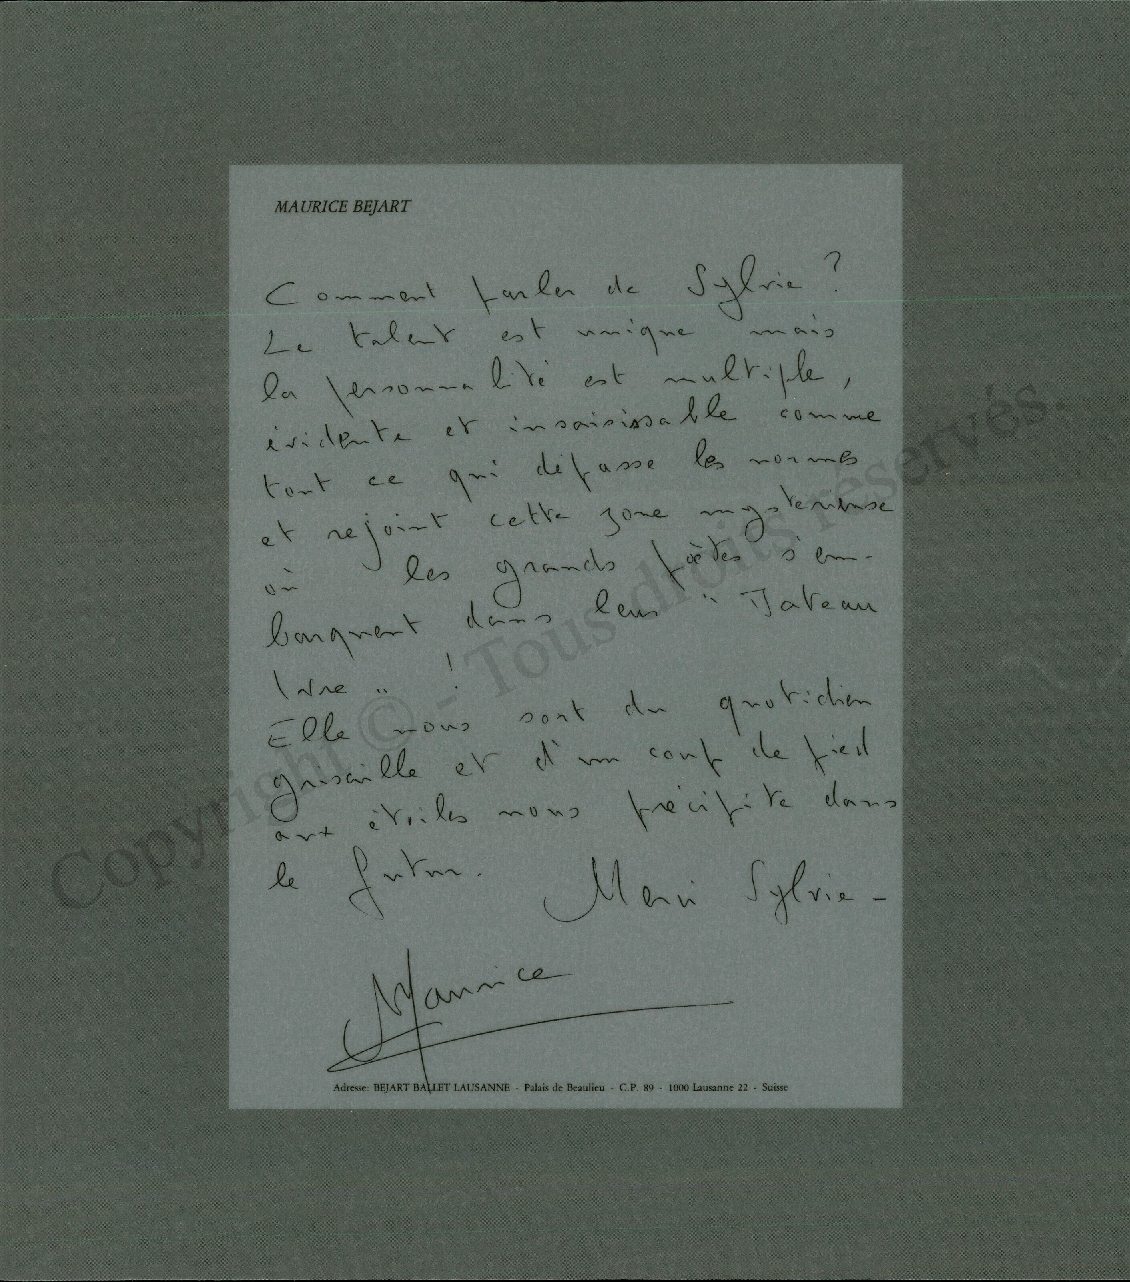 MAURICE BEJART
Comment parler de Sylvie ?
Le talent est unique mais
la personnalité est multiple,
évidente et insaisissable comme
tout ce qui dépasse les normes
et rejoint cette zone mysterieuse
où les grands poètes s'em-
barquent dans leur " Bateau
Ivre " !
Elle nous sort du quotidien
grisaille et d'un coup de pied
aux étoiles nous précipite dans
le futur. Merci Sylvie -
Maurice
Adresse: BEJART BALLET LAUSANNE - Palais de Beaulieu - C.P. 89 - 1000 Lausanne 22 - Suisse
Copyright © - Tous droits réservés.